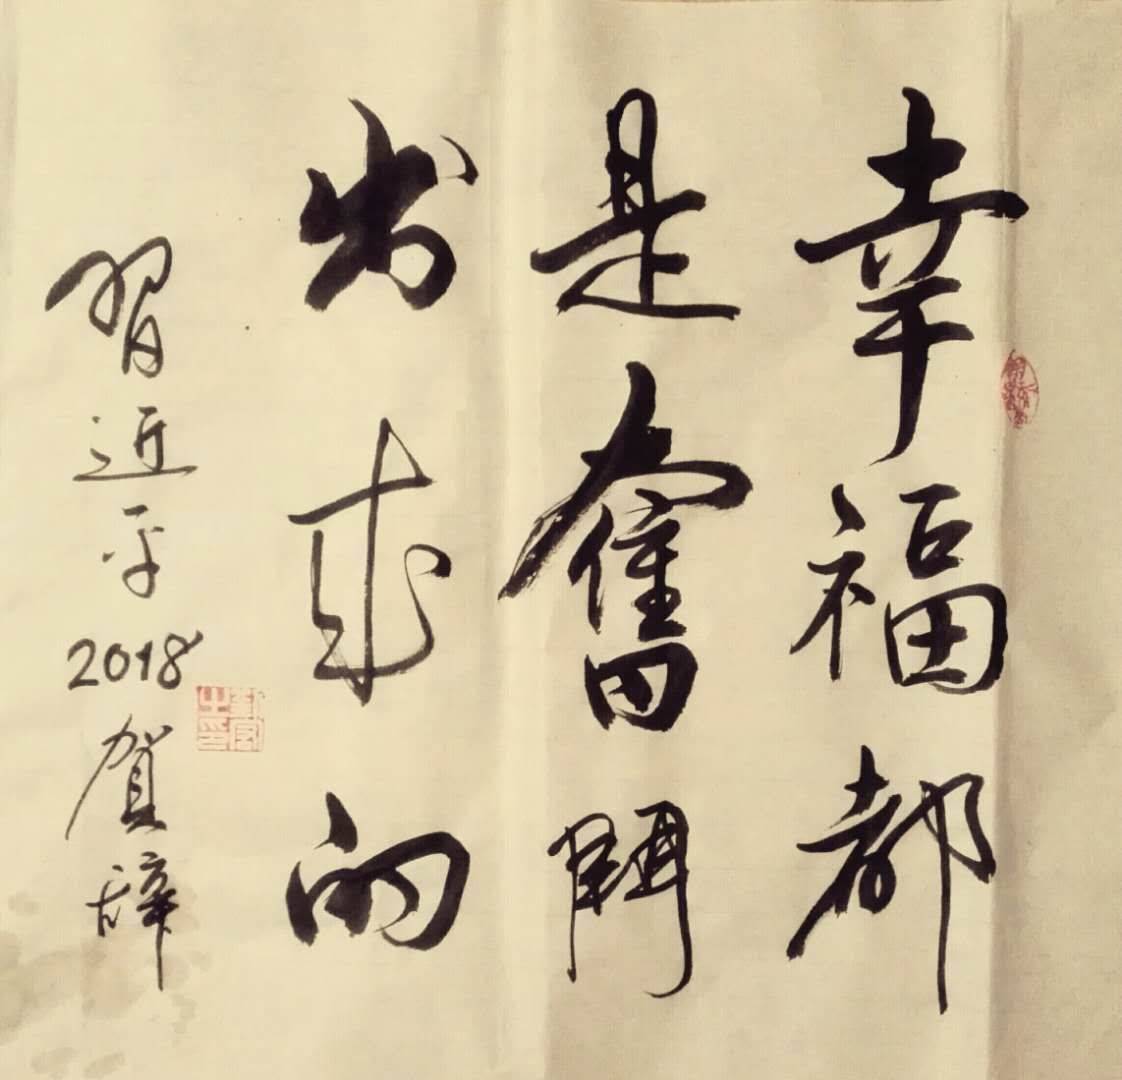 幸福都
是奮鬥
出來的
習近平2018賀辞
之印